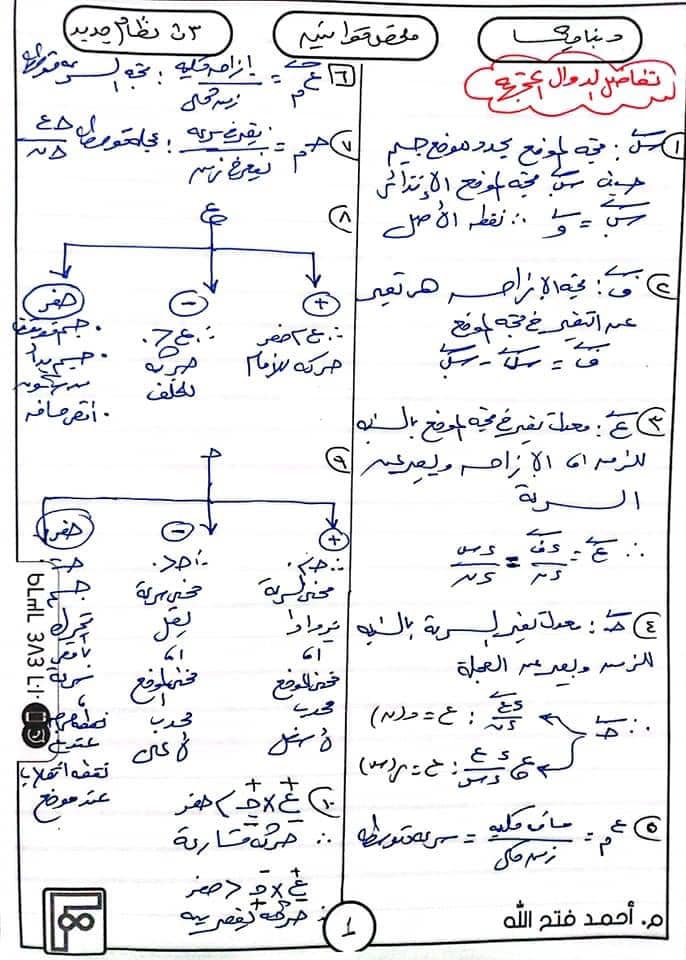 ديناميكا
ملخص قوانين
٣ث نظام جديد
تفاضل الدوال المتجهة
١) س: متجه الموضع يحدد موضع جسم
حيث س. متجه الموضع الابتدائى
س. = و ∴ نقطة الأصل
٢) ف: متجه الإزاحة هو تعبير
عن التغير فى متجه الموضع
ف = س - س.
٣) ع: معدل تغير فى متجه الموضع بالنسبة
للزمن أى الإزاحة ويعبر عن
السرعة
∴ ع = ءف/ءن = ءس/ءن
٤) حـ: معدل تغير السرعة بالنسبة
للزمن ويعبر عن العجلة
∴ حـ
ءع/ءن : ع = د(ن)
ع ءع/ءس : ع = ر(س)
٥) عم = مسافة كلية/زمن كلى = سرعة متوسطة
٦) عم = إزاحة كلية/زمن كلى : متجه السرعة المتوسطة
٧) حـم = تغير فى سرعة/تغير فى زمن : عجلة متوسطة Δع/Δن
٨) ع
+
∴ ع > صفر
حركة للأمام
-
∴ ع < ٠
حركة
للخلف
صفر
• جسم توقف
• جسم بدأ
من سكون
• أقصى مسافة
٩) حـ
+
∴ حـ > ٠
منحنى السرعة
يزداد
أى
منحنى الموضع
محدب
لأسفل
-
∴ حـ < ٠
منحنى سرعة
يقل
أى
منحنى الموضع
محدب
لأعلى
صفر
جسم
تحرك
بأقصى
سرعة
نقطة حرجة
عند ع
نقطة انقلاب
عند موضع
١٠) ع × حـ > صفر
∴ حركة متسارعة
ع × حـ < صفر
∴ حركة تقصيرية
م. أحمد فتح الله
١